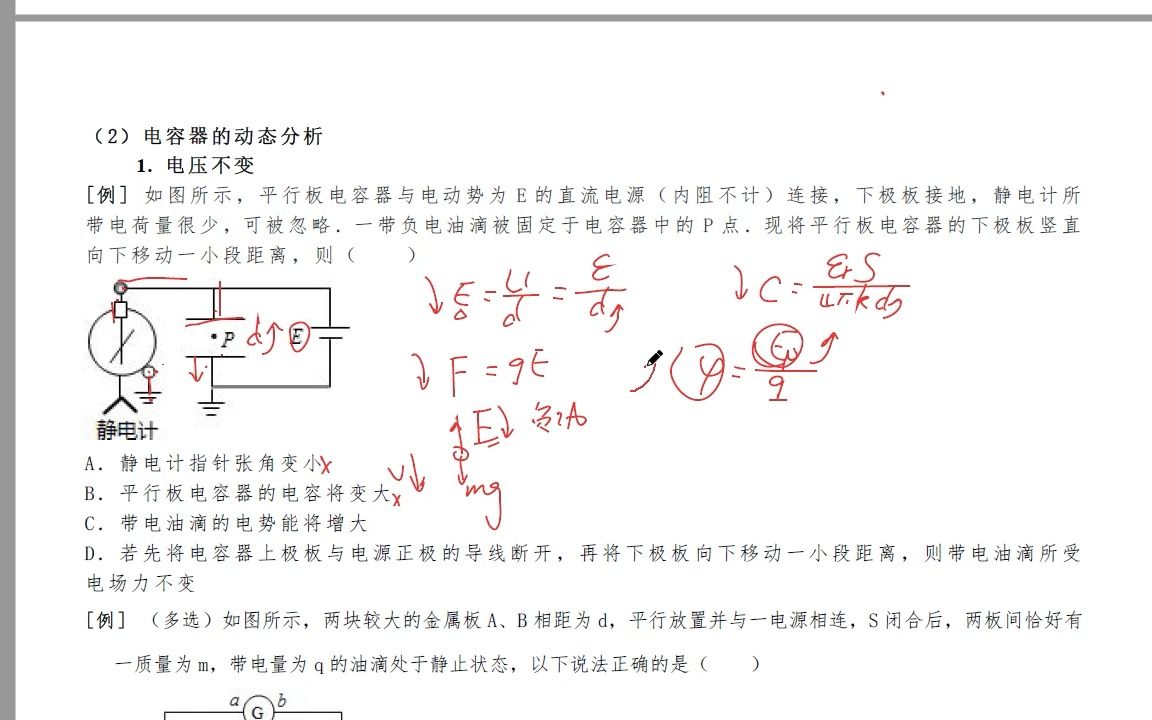 （2）电容器的动态分析
1. 电压不变
[例] 如图所示，平行板电容器与电动势为 E 的直流电源（内阻不计）连接，下极板接地，静电计所
带电荷量很少，可被忽略．一带负电油滴被固定于电容器中的 P 点．现将平行板电容器的下极板竖直
向下移动一小段距离，则（　　）
P d↑ E
静电计
↓E=U/d=E/d↑
↓C=εrS/4πkd↑
↓F=qE
φ=Ep/q↑
E↓
mg
A. 静电计指针张角变小x
B. 平行板电容器的电容将变大x
C. 带电油滴的电势能将增大
D. 若先将电容器上极板与电源正极的导线断开，再将下极板向下移动一小段距离，则带电油滴所受
电场力不变
[例] （多选）如图所示，两块较大的金属板 A、B 相距为 d，平行放置并与一电源相连，S 闭合后，两板间恰好有
一质量为 m，带电量为 q 的油滴处于静止状态，以下说法正确的是（　　）
a G b